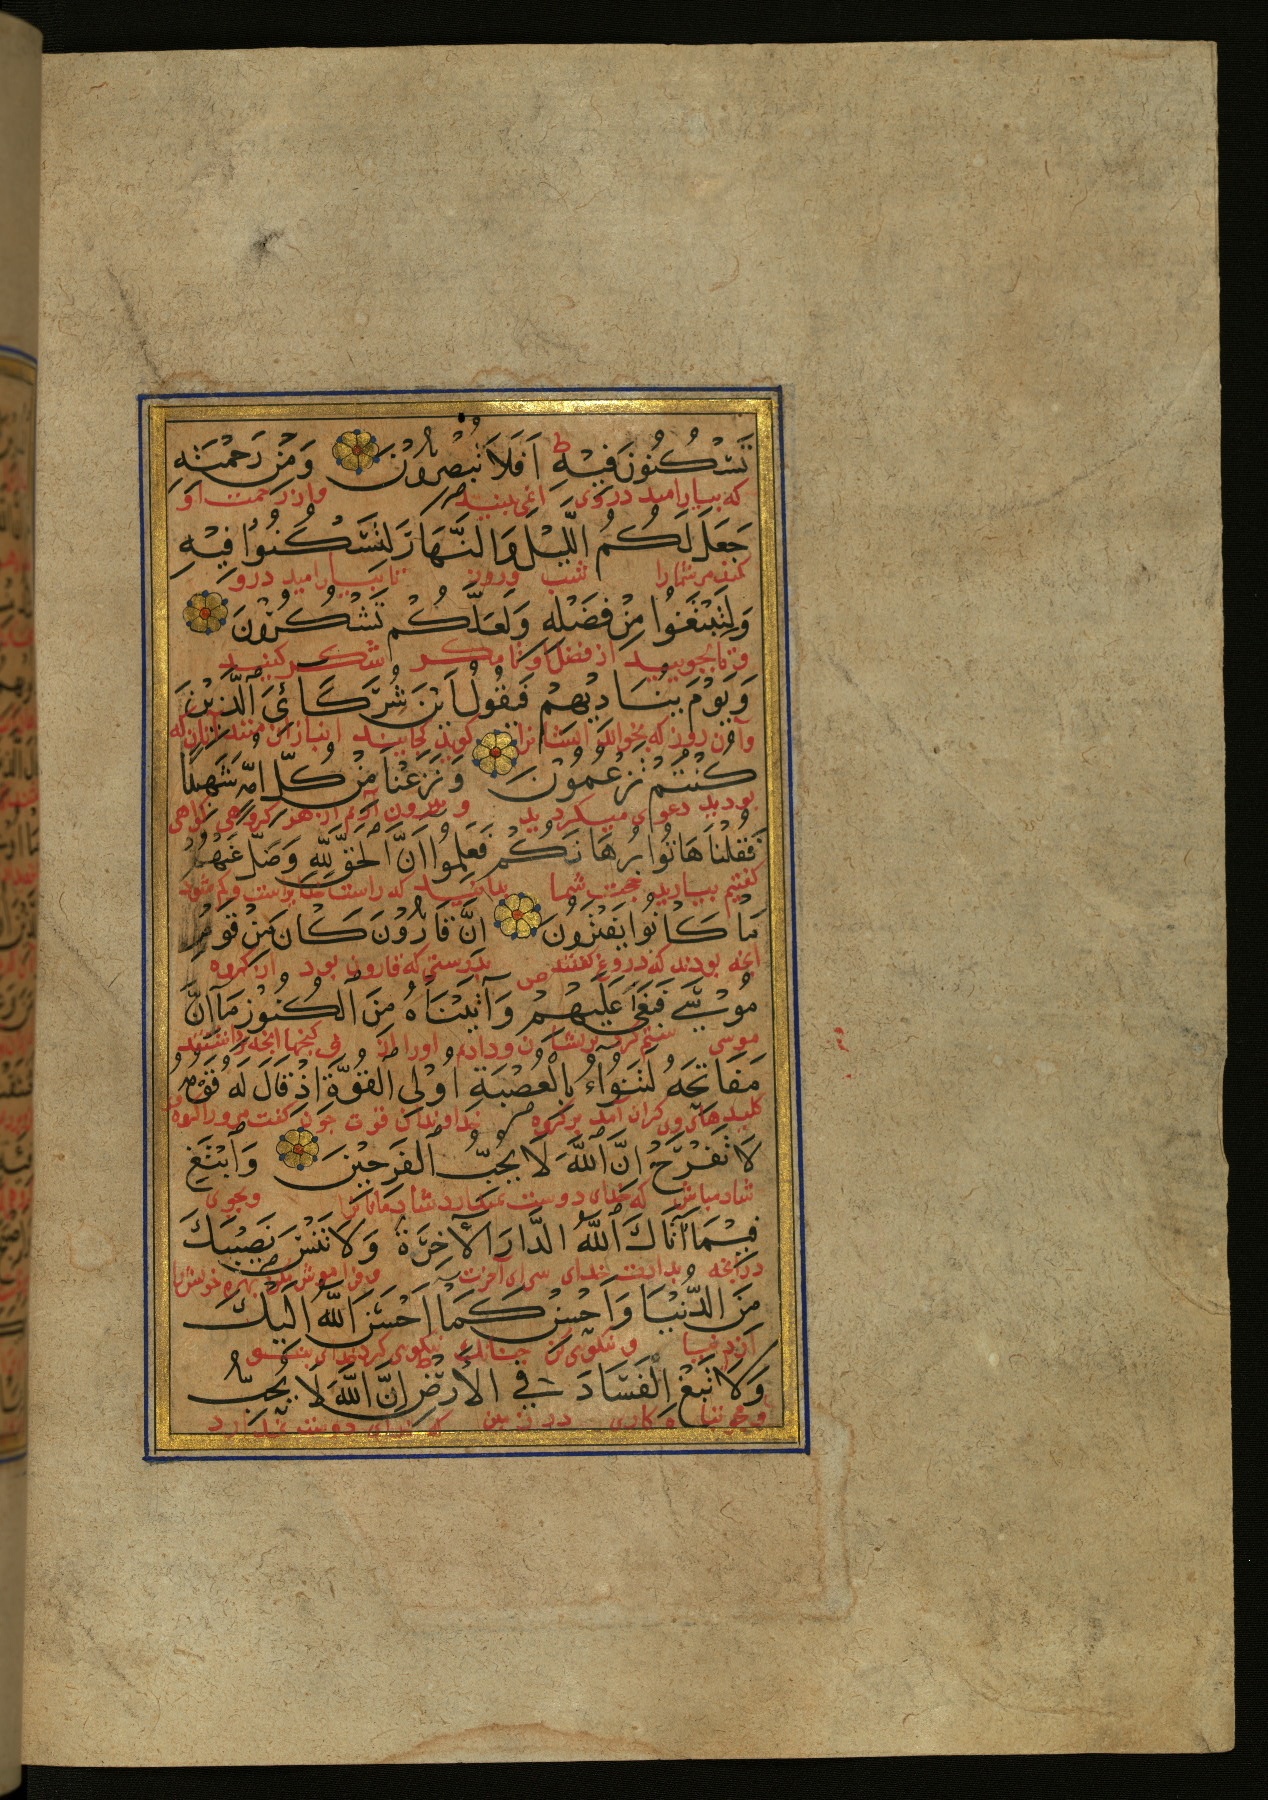 تَسْكُنُونَ فِيهِ ط اَفَلَا تُبْصِرُونَ وَمِنْ رَحْمَتِهِ
که بیارامید در وی نمی بینید و از رحمت او
جَعَلَ لَكُمُ الَّيْلَ وَالنَّهَارَ لِتَسْكُنُوا فِيهِ
شما را شب و روز تا بیارامید درو
وَلِتَبْتَغُوا مِنْ فَضْلِهِ وَلَعَلَّكُمْ تَشْكُرُونَ
و تا بجویید از فضل او و تا مگر شکر کنید
وَيَوْمَ يُنَادِيهِمْ فَيَقُولُ اَيْنَ شُرَكَائِيَ الَّذِينَ
و آن روز که بخواند ایشانرا گوید کجایند انبازان من آنان که
كُنْتُمْ تَزْعُمُونَ وَنَزَعْنَا مِنْ كُلِّ اُمَّةٍ شَهِيدًا
بودید دعوی میکردید و بیرون آریم از هر گروهی گواهی
فَقُلْنَا هَاتُوا بُرْهَانَكُمْ فَعَلِمُوا اَنَّ الْحَقَّ لِلّٰهِ وَضَلَّ عَنْهُمْ
گفتیم بیارید حجت شما بدانید که راست خدایراست و گم شود
مَا كَانُوا يَفْتَرُونَ اِنَّ قَارُونَ كَانَ مِنْ قَوْمِ
آنچه بودند که دروغ گفتند بدرستی که قارون بود از گروه
مُوسَى فَبَغَى عَلَيْهِمْ ص وَآتَيْنَاهُ مِنَ الْكُنُوزِ مَا اِنَّ
موسی ستم کرد بریشان و دادیم او را از گنجها آنچه
مَفَاتِحَهُ لَتَنُوءُ بِالْعُصْبَةِ اُولِي الْقُوَّةِ اِذْ قَالَ لَهُ قَوْمُهُ
کلیدهای وی گران آمد بر گروه خداوندان قوت چون گفت مرورا گروه وی
لَا تَفْرَحْ اِنَّ اللّٰهَ لَا يُحِبُّ الْفَرِحِينَ وَابْتَغِ
شاد مباش که خدای دوست ندارد شادمانانرا و بجوی
فِيمَا آتَاكَ اللّٰهُ الدَّارَ الْآخِرَةَ وَلَا تَنْسَ نَصِيبَكَ
در آنچه بدادت خدای سرای آخرت و فراموش مکن بهره خویش را
مِنَ الدُّنْيَا وَاَحْسِنْ كَمَا اَحْسَنَ اللّٰهُ اِلَيْكَ
از دنیا و نیکوی کن چنانک نیکوی کرد خدای بتو
وَلَا تَبْغِ الْفَسَادَ فِي الْاَرْضِ ط اِنَّ اللّٰهَ لَا يُحِبُّ
و مجو تباه کاری در زمین که خدای دوست ندارد